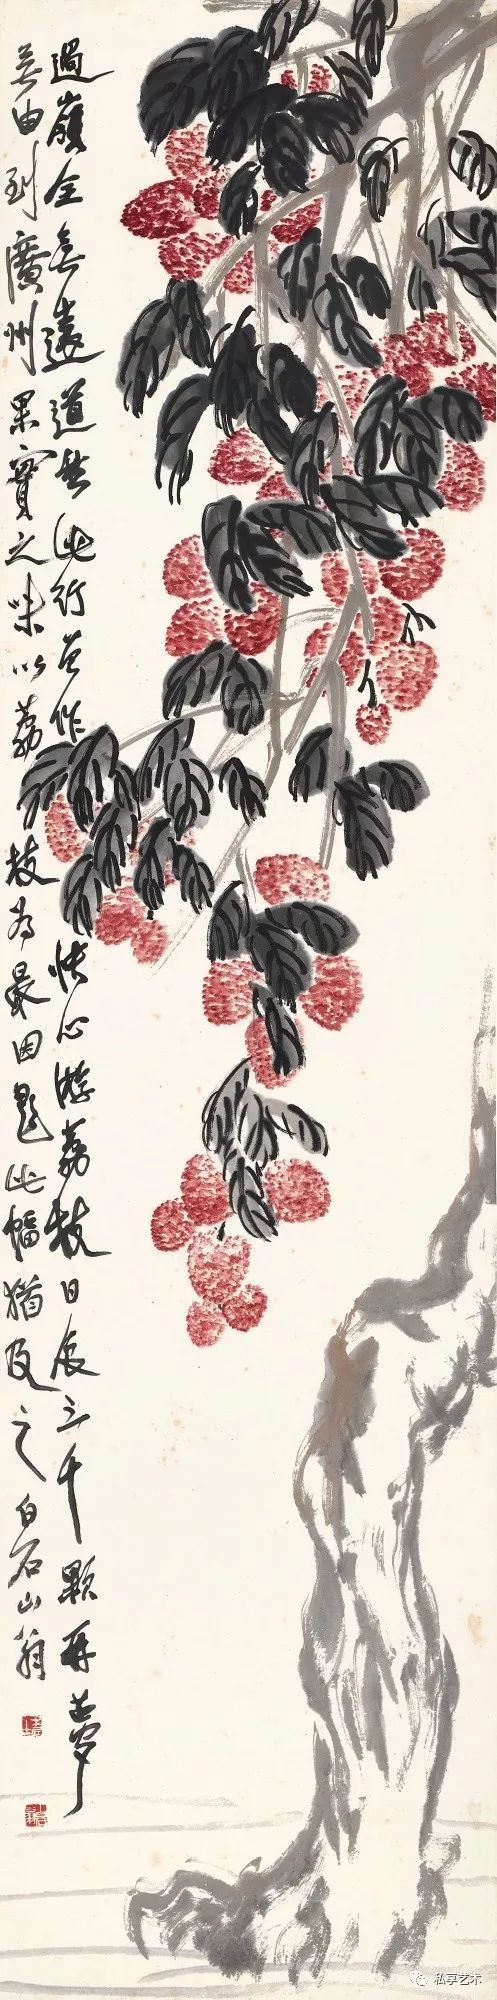 過嶺全無遠道愁此行曾作快心游荔枝日食三千顆再夢
無由到廣州果實之味以荔枝為最因題此幅猶及之白石山翁
私享艺术